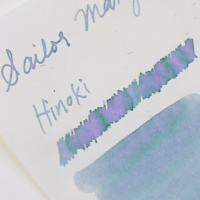 Sailor
Hinoki